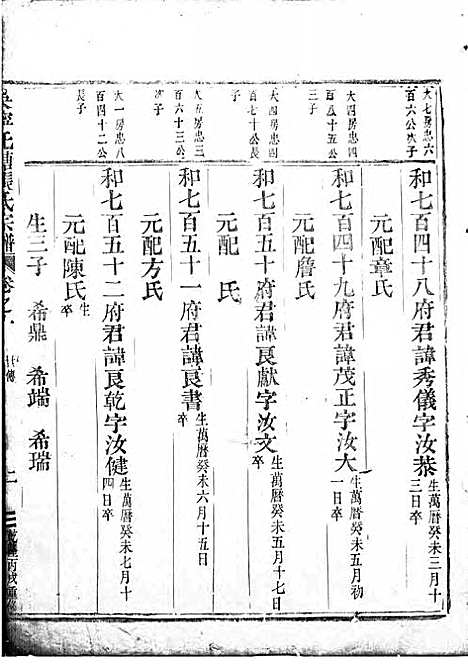 大七房忠六
百六公次子
和七百四十八府君諱秀儀字汝恭
生萬曆癸未三月十
三日卒
元配章氏
大四房忠四
百五十五公
三子
和七百四十九府君諱茂正字汝大
生萬曆癸未五月初
一日卒
元配詹氏
大四房忠四
百七十公長
子
和七百五十府君諱良獻字汝文
生萬曆癸未五月十七日
卒
元配 氏
大五房忠三
百六十三公
次子
和七百五十一府君諱良書
生萬曆癸未六月十五日
卒
元配方氏
大一房忠八
百四十二公
長子
和七百五十二府君諱良乾字汝健
生萬曆癸未七月十
四日卒
元配陳氏
生
卒
生三子 希鼎 希端 希瑞
張氏宗譜 卷之